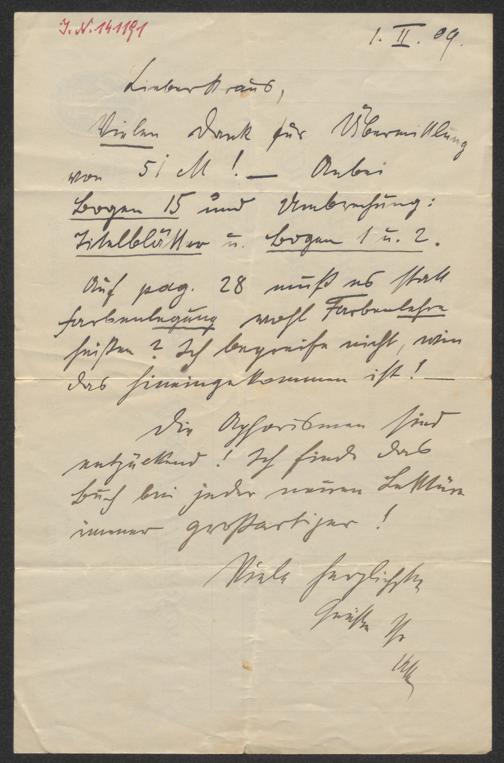 I.N. 141191
1. II. 09.
Lieber Kraus,
Vielen Dank für Übermittlung
von 51 M! — Anbei
Bogen 15 und Umbrechung:
Titelblätter u. Bogen 1 u. 2.
Auf pag. 28 muß es statt
Farbenlegung wohl Farbenlehre
heißen? Ich begreife nicht, wie
das hineingekommen ist! —
Die Aphorismen sind
entzückend! Ich finde das
Buch bei jeder neuen Lektüre
immer großartiger!
Viele herzlichste
Grüße Ihr